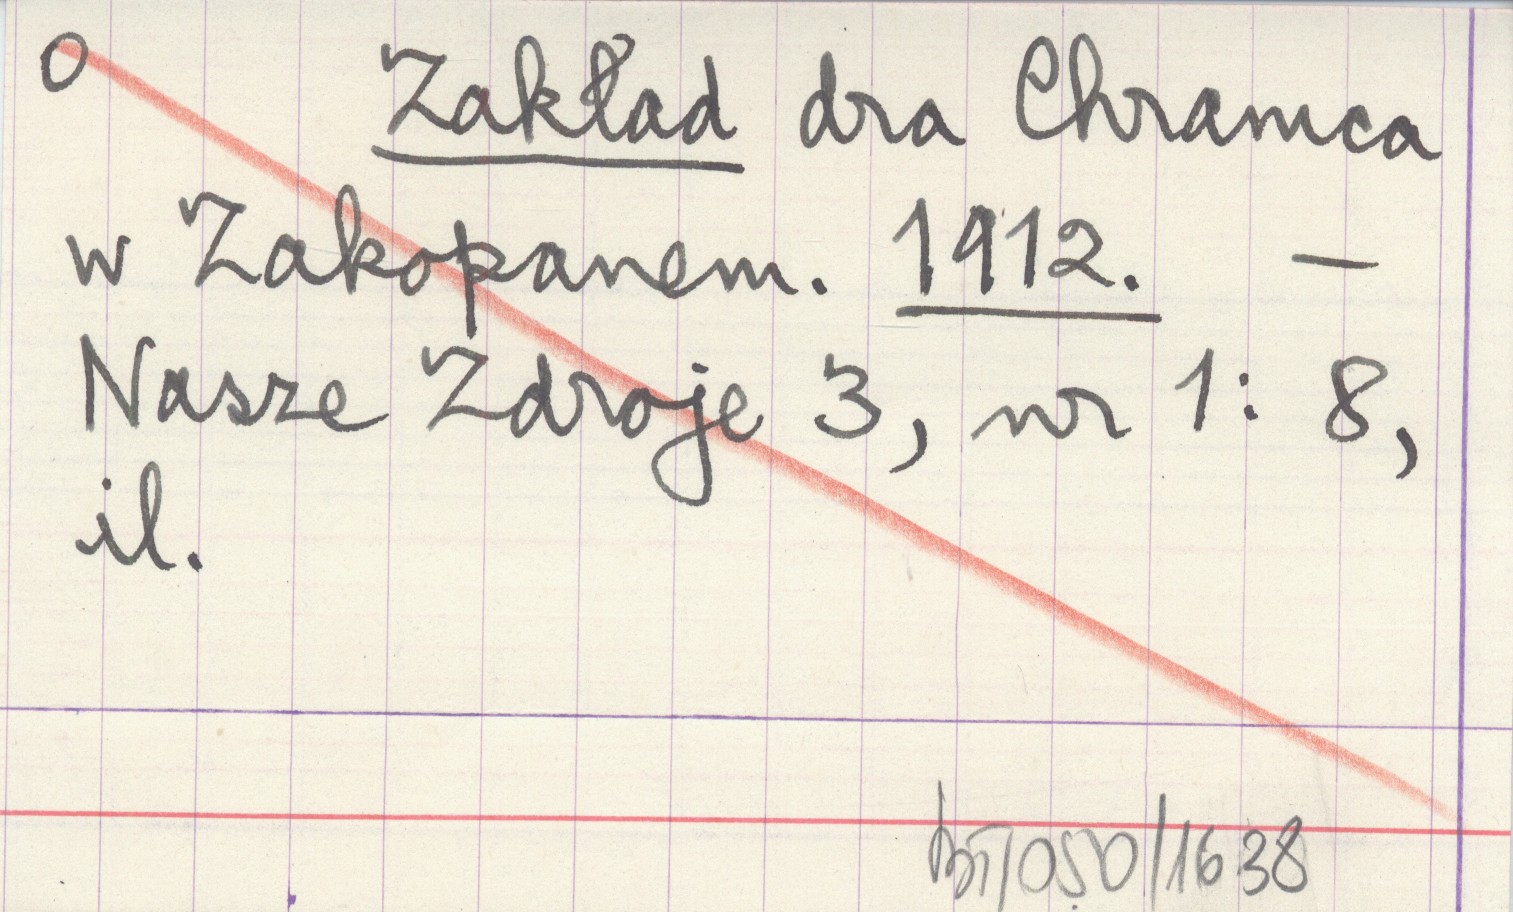 O Zakład dra Chramca
w Zakopanem. 1912. —
Nasze Zdroje 3, nr 1: 8,
il.
/050/1638